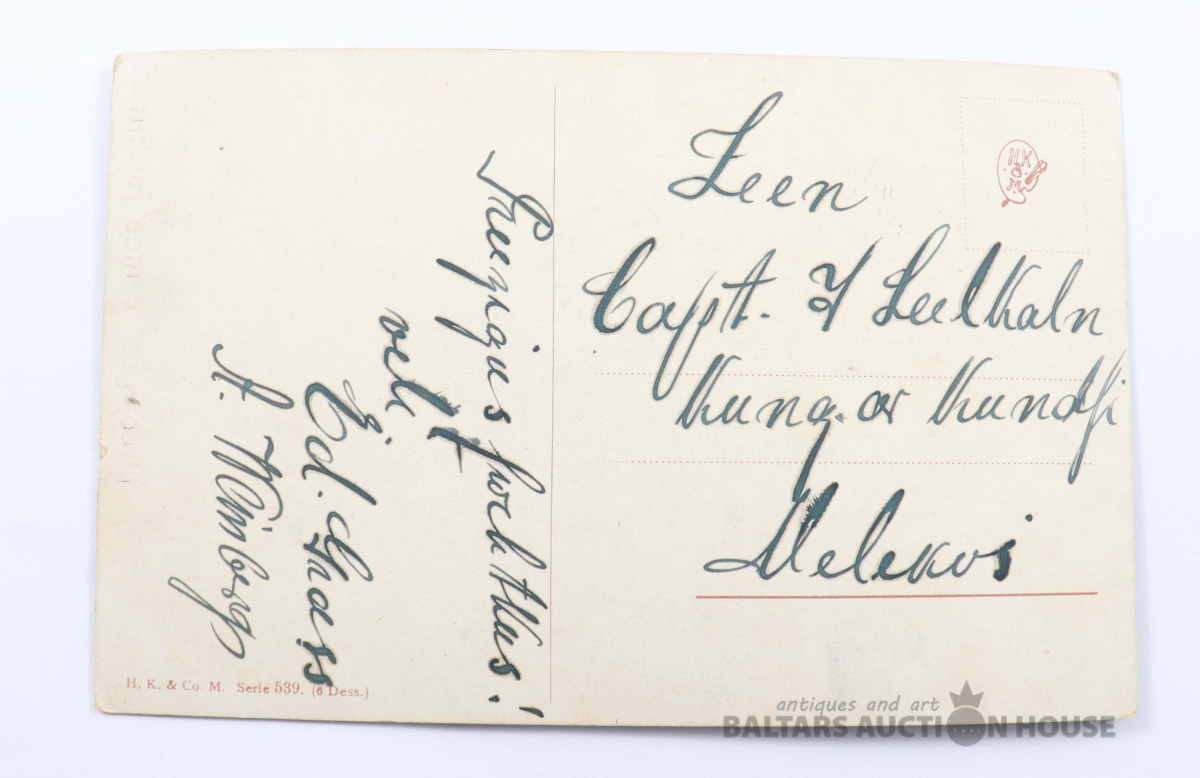 Leen
Capt. J Leelkaln
Kung. ar Kundſi
Melekos
Preezigus swehtkus!
vehl
Ed. Grass
A. Wimberg
H. K. & Co M. Serie 539. (6 Dess.)
H K
&
M.
antiques and art
BALTARS AUCTION HOUSE